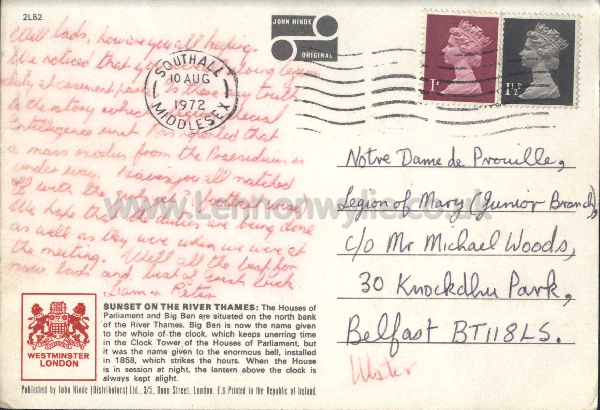 2L52
JOHN HINDE
ORIGINAL
SOUTHALL
10 AUG
1972
MIDDLESEX
1P
1½P
Well lads, how are you all keeping.
We noticed that
at casement park. Is there any truth
in the story which
intelligence unit has reported that
a mass exodus from the Praesidium is
under way. Have you all matched
up with the
We hope that the duties are being done
as well as they were when we were at
the meeting. Well all the best for
now lads and best of luck
Liam + Peter
Notre Dame de Prouille,
Legion of Mary (Junior Branch),
c/o Mr Michael Woods,
30 Knockdhu Park,
Belfast BT11 8LS.
Ulster
www.Lennonwylie.co.uk
WESTMINSTER
LONDON
SUNSET ON THE RIVER THAMES: The Houses of
Parliament and Big Ben are situated on the north bank
of the River Thames. Big Ben is now the name given
to the whole of the clock, which keeps unerring time
in the Clock Tower of the Houses of Parliament, but
it was the name given to the enormous bell, installed
in 1858, which strikes the hours. When the House
is in session at night, the lantern above the clock is
always kept alight.
Published by John Hinde (Distributors) Ltd., 3/5, Dunn Street, London, E.8. Printed in the Republic of Ireland.